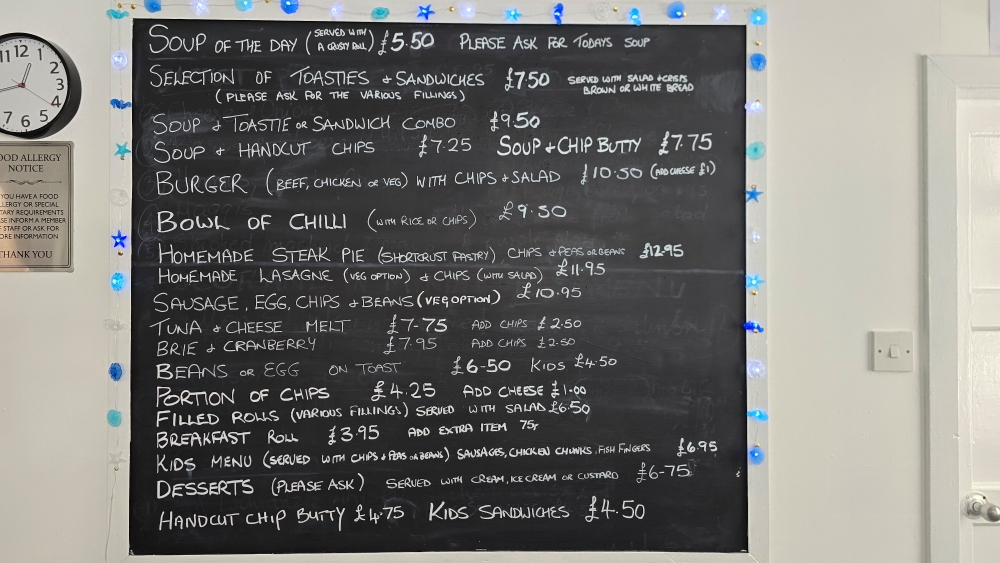 SOUP OF THE DAY (SERVED WITH A CRUSTY ROLL) £5.50 PLEASE ASK FOR TODAYS SOUP
SELECTION OF TOASTIES & SANDWICHES £7.50 SERVED WITH SALAD & CRISPS
(PLEASE ASK FOR THE VARIOUS FILLINGS) BROWN OR WHITE BREAD
SOUP & TOASTIE OR SANDWICH COMBO £9.50
SOUP & HANDCUT CHIPS £7.25 SOUP & CHIP BUTTY £7.75
BURGER (BEEF, CHICKEN OR VEG) WITH CHIPS & SALAD £10.50 (ADD CHEESE £1)
BOWL OF CHILLI (WITH RICE OR CHIPS) £9.50
HOMEMADE STEAK PIE (SHORTCRUST PASTRY) CHIPS & PEAS OR BEANS £12.95
HOMEMADE LASAGNE (VEG OPTION) & CHIPS (WITH SALAD) £11.95
SAUSAGE, EGG, CHIPS & BEANS (VEG OPTION) £10.95
TUNA & CHEESE MELT £7-75 ADD CHIPS £2.50
BRIE & CRANBERRY £7.95 ADD CHIPS £2.50
BEANS OR EGG ON TOAST £6-50 KIDS £4.50
PORTION OF CHIPS £4.25 ADD CHEESE £1.00
FILLED ROLLS (VARIOUS FILLINGS) SERVED WITH SALAD £6.50
BREAKFAST ROLL £3.95 ADD EXTRA ITEM 75p
KIDS MENU (SERVED WITH CHIPS & PEAS OR BEANS) SAUSAGES, CHICKEN CHUNKS, FISH FINGERS £6.95
DESSERTS (PLEASE ASK) SERVED WITH CREAM, ICE CREAM OR CUSTARD £6-75
HANDCUT CHIP BUTTY £4.75 KIDS SANDWICHES £4.50
11 12 1
2
3
4
5
6
7
OOD ALLERGY
NOTICE
YOU HAVE A FOOD
LLERGY OR SPECIAL
TARY REQUIREMENTS
SE INFORM A MEMBER
F STAFF OR ASK FOR
ORE INFORMATION
THANK YOU